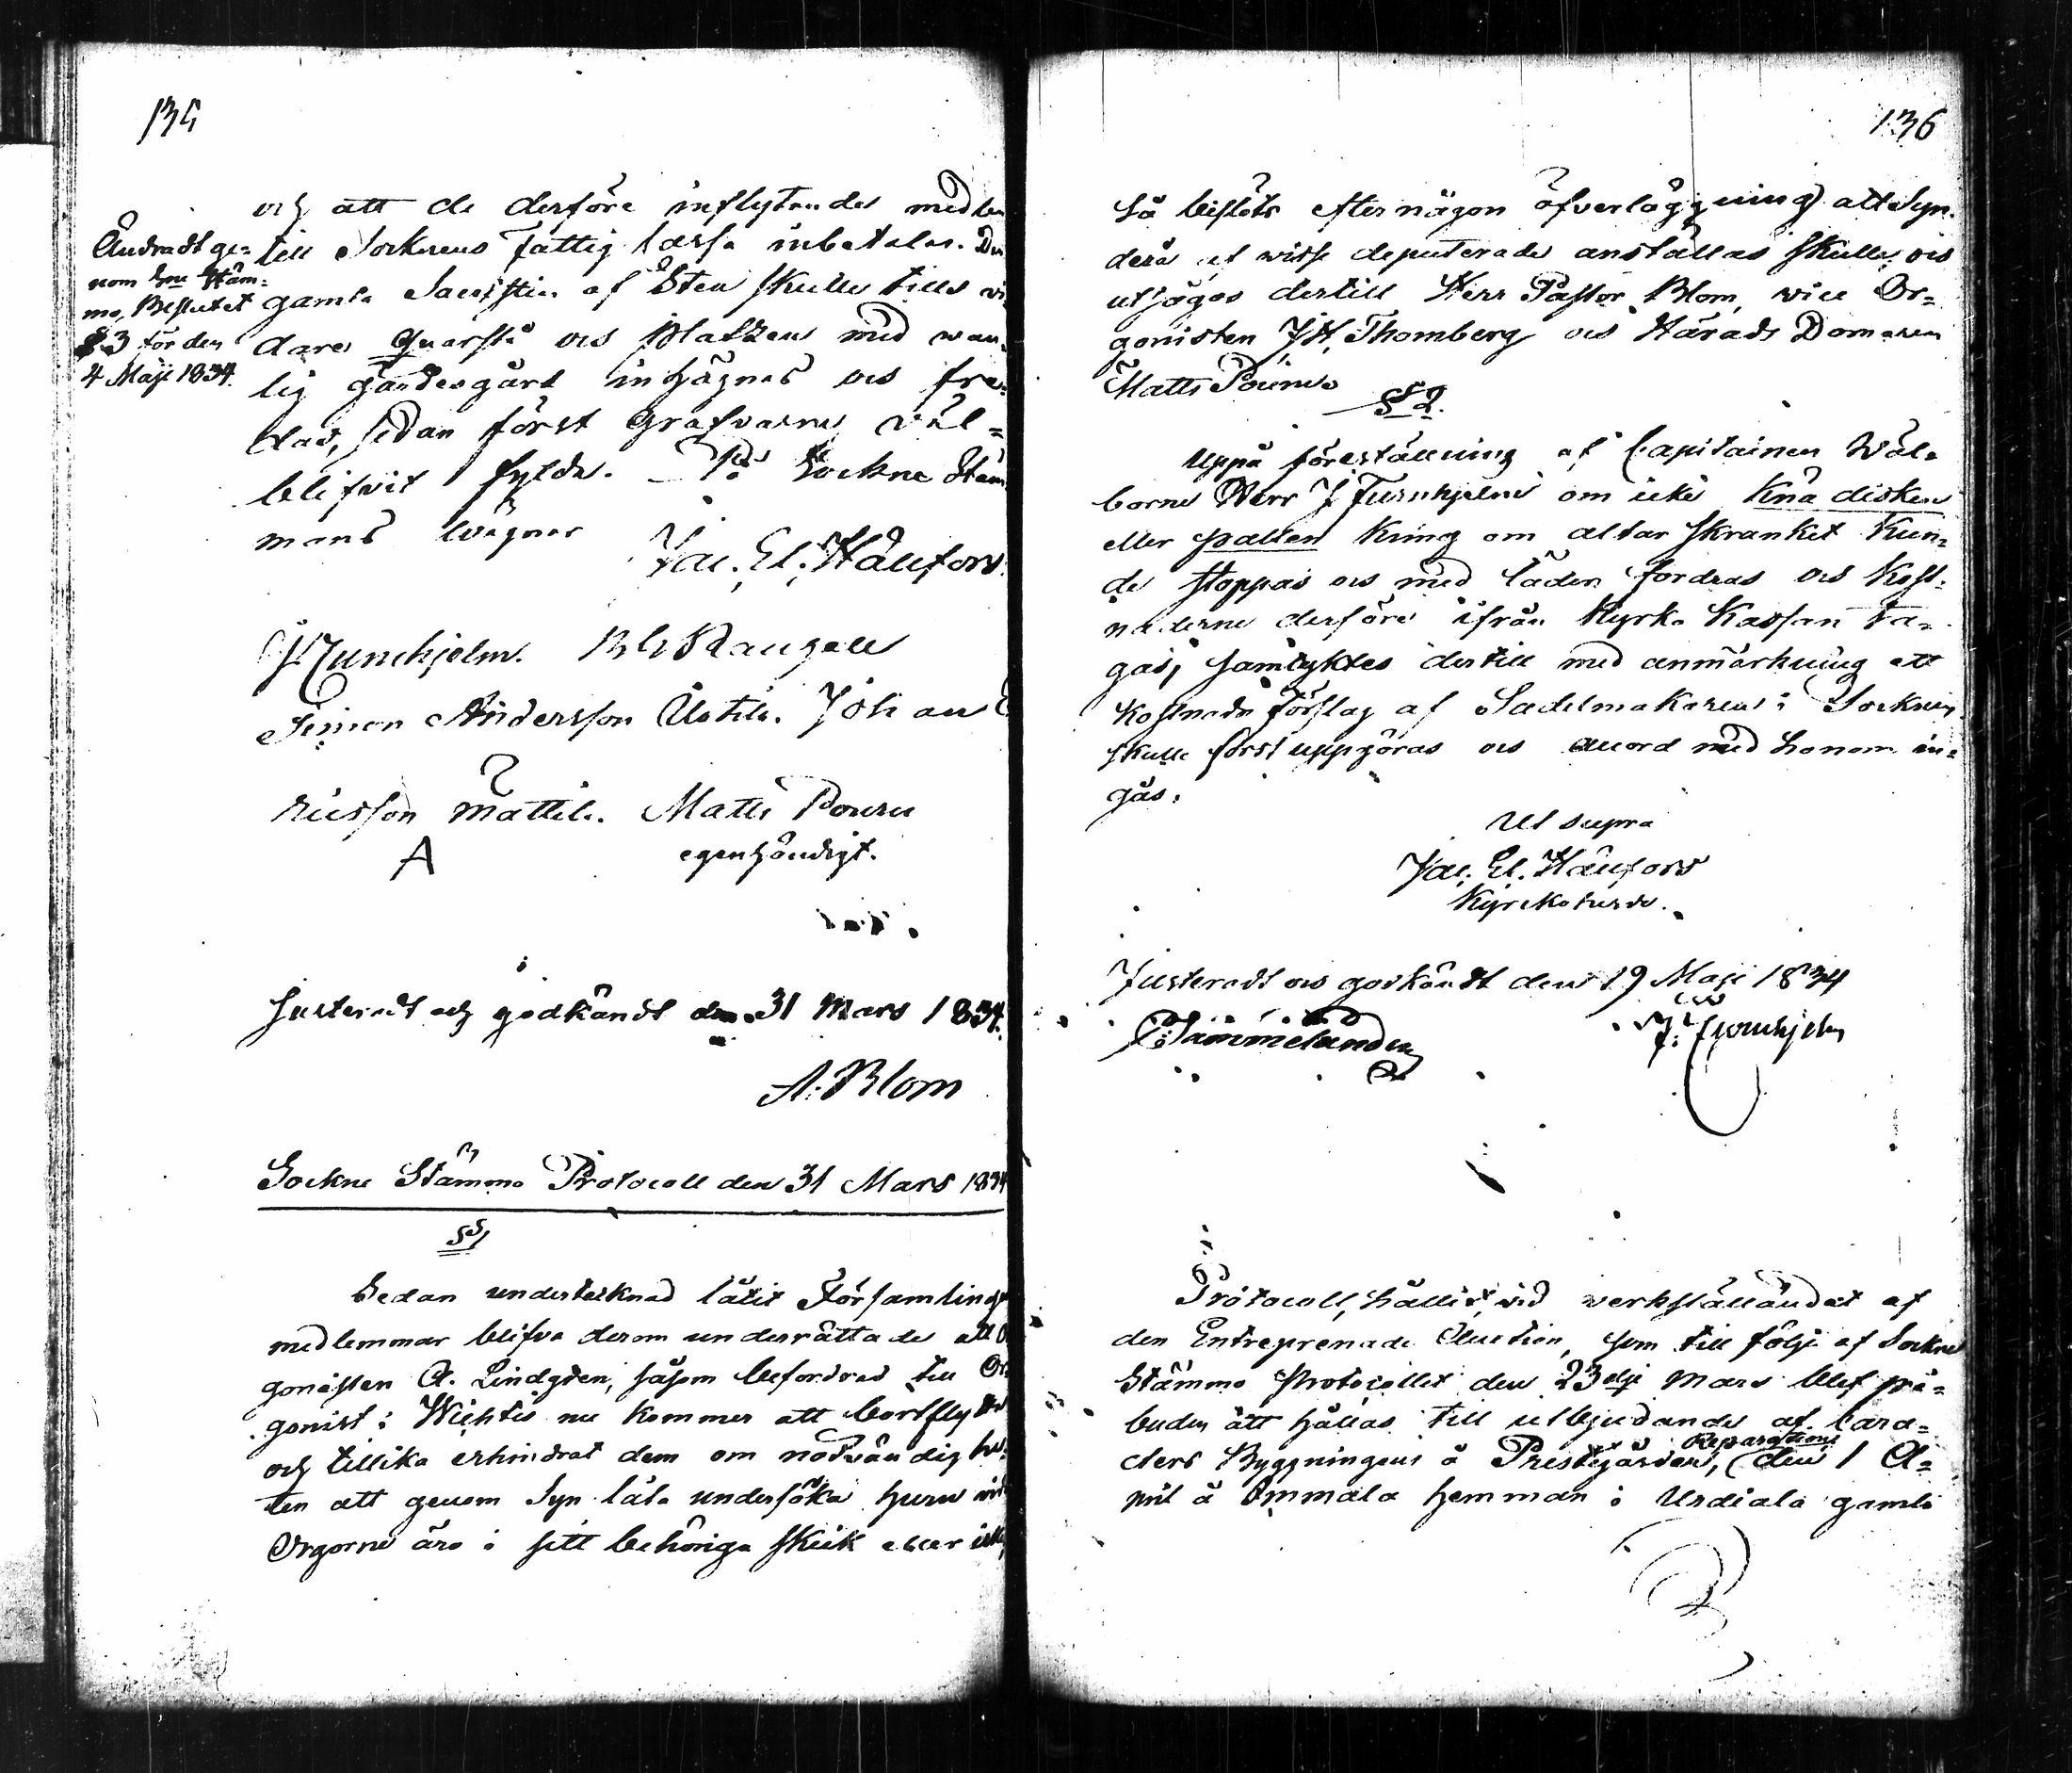 135
och att de derföre inflytande medlen
till Sockens Fattig Cassa inbetalas. Den
gamla Sacristian af Sten skulle tills vi=
dare quarstå och Platzen med van=
lig gärdesgård inhägnas och fre=
das, sedan först Grafvarne väl=
blifvit fylde. På Sockne Stäm=
mans vägnar
Jac. El. Hällfors.
Ändradt ge=
nom Sne Stäm=
mo, Beslutet
§3 för den
4 Maji 1834.
J. Furuhjelm.
Simon Andersson Uotila. Johan
Ericsson Mattila. Matts Pouru
A egenhändigt.
Justeradt och godkändt den 31 Mars 1834.
A. Blom
Sockne Stämmo Protocoll den 31 Mars 1834
§1
Sedan undertecknad låtit Församlings
medlemmar blifva derom underrättade att Or
gonisten A. Lindgren, såsom befordrad till Or
gonist i Wichtis nu kommer att bortflytta
och tillika erhindrat dem om nödvändighe=
ten att genom Syn låta undersöka huru vida
Orgorne äro i sitt behöriga skick eller icke,
136
Så beslöts efter någon öfverläggning att Syn
derå af visse deputerade anställas skulle, och
utsågos dertill Herr Pastor Blom, vice Or=
gonisten J.H. Thomberg och Härads Domaren
Matts Pouru
§ 2.
Uppå föreställning af Capitainen Wäl=
borne Herr J Furuhjelm om icke Knä disken
eller pallen kring om altar skranket kun=
de stoppas och med läder fordras och Kost=
naderne derföre ifrån Kyrko Kassan ta=
gas, samtyktes dertill med anmärkning att
Kostnads förslag af Sadelmakaren i Socknen
skulle först uppgöras och accord med honom in=
gås.
Ut supra
Jac. El. Hällfors
Kyrkoherde.
Justeradt och godkändt den 19 Maji 1834
J. Furuhjelm
Protocoll, hållit, vid verkställandet af
den Entreprenade Auction, som till följe af Sockne
Stämmo Protocollet den 23dje Mars blef på=
buden att hållas till utbjudande af Cara=
cters Byggningens å Prestegården, Reparation (den 1 A=
pril å Ommala hemman i Urdiala gamla